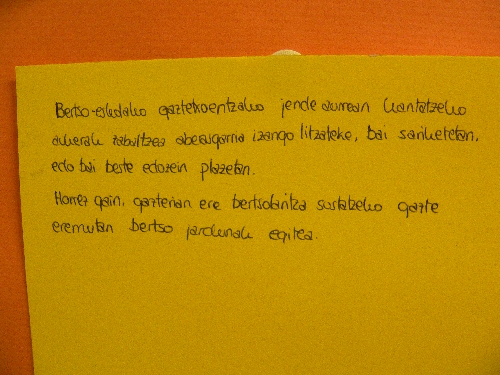 Bertso-eskolako gaztetxoentzako jende aurrean kantatzeko
aukerak zabaltzea aberasgarria izango litzateke, bai sariketetan,
edo bai beste edozein plazetan.
Horrez gain, gazterian ere bertsolaritza sustatzeko gazte
eremutan bertso jardunak egitea.